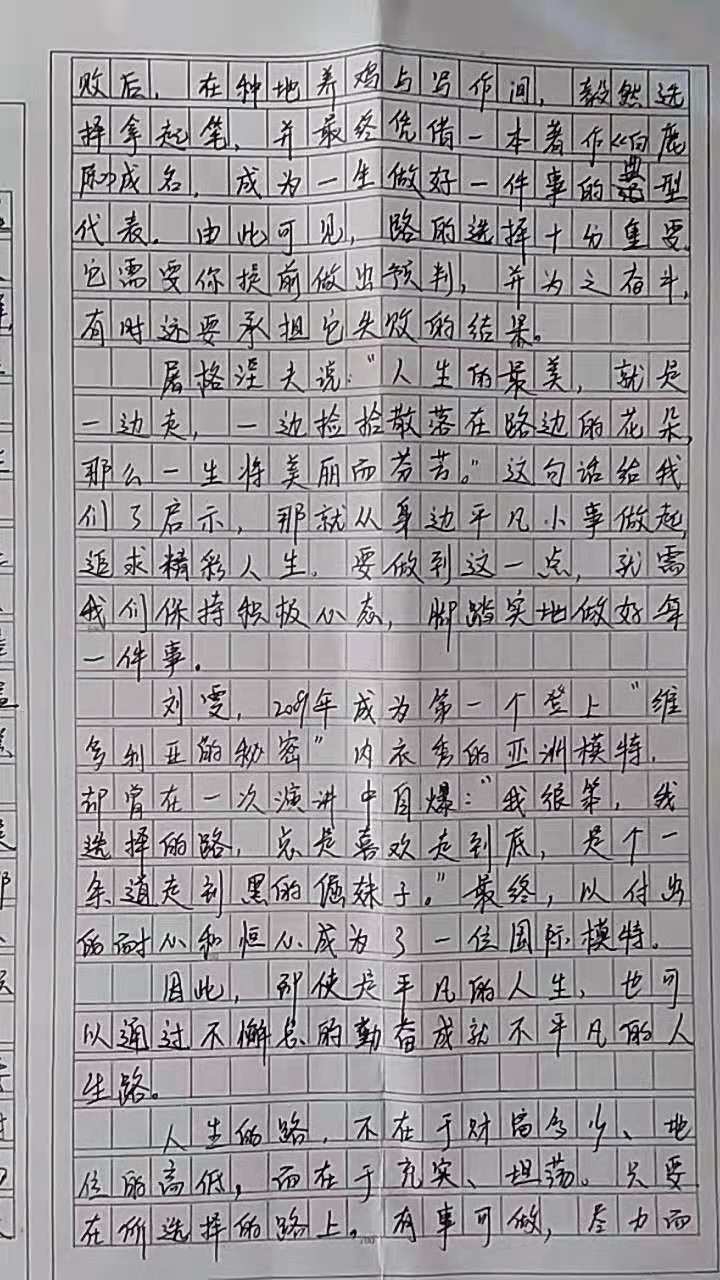 败后，在种地养鸡与写作间，毅然选
择拿起笔，并最终凭借一本著作《白鹿
原》成名，成为一生做好一件事的典型
代表。由此可见，路的选择十分重要，
它需要你提前做出预判，并为之奋斗，
有时还要承担它失败的结果。
屠格涅夫说：“人生的最美，就是
一边走，一边捡拾散落在路边的花朵，
那么一生将美丽而芬芳。”这句话给我
们了启示，那就从身边平凡小事做起，
追求精彩人生。要做到这一点，就需
我们保持积极心态，脚踏实地做好每
一件事。
刘雯，2009年成为第一个登上“维
多利亚的秘密”内衣秀的亚洲模特，
却曾在一次演讲中自爆：“我很笨，我
选择的路，总是喜欢走到底，是个一
条道走到黑的倔妹子。”最终，以付出
的耐心和恒心成为了一位国际模特。
因此，即使是平凡的人生，也可
以通过不懈怠的勤奋成就不平凡的人
生路。
人生的路，不在于财富多少、地
位的高低，而在于充实、坦荡。只要
在所选择的路上，有事可做，尽力而